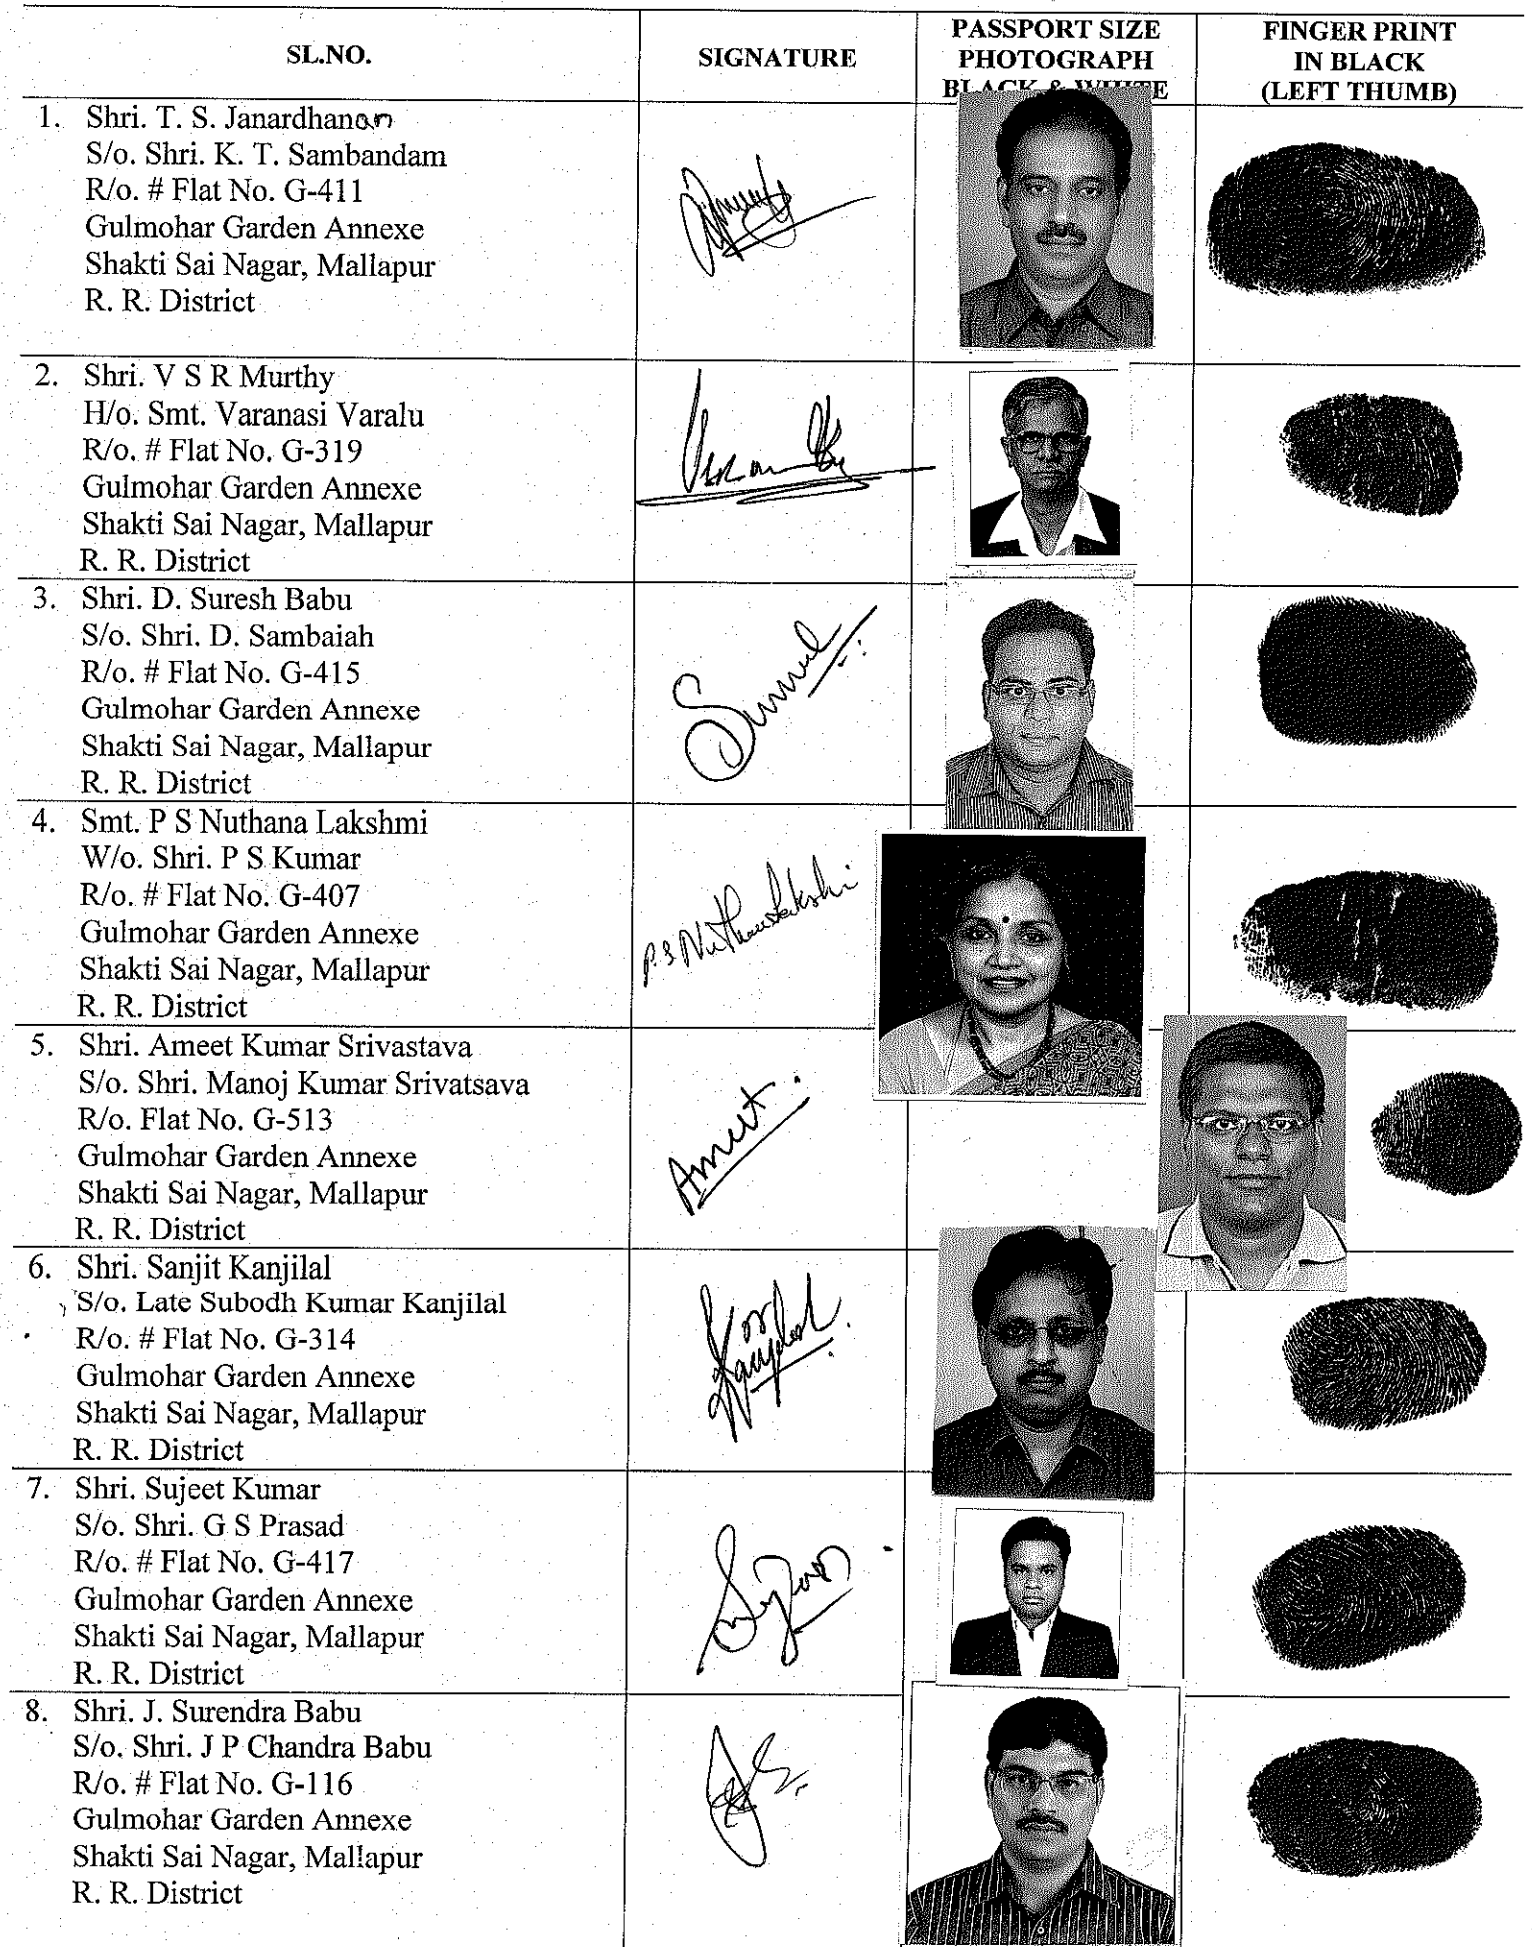 SL.NO.
SIGNATURE
PASSPORT SIZE
PHOTOGRAPH
BLACK & WHITE
FINGER PRINT
IN BLACK
(LEFT THUMB)
1. Shri. T. S. Janardhanan
S/o. Shri. K. T. Sambandam
R/o. # Flat No. G-411
Gulmohar Garden Annexe
Shakti Sai Nagar, Mallapur
R. R. District
2. Shri. V S R Murthy
H/o. Smt. Varanasi Varalu
R/o. # Flat No. G-319
Gulmohar Garden Annexe
Shakti Sai Nagar, Mallapur
R. R. District
3. Shri. D. Suresh Babu
S/o. Shri. D. Sambaiah
R/o. # Flat No. G-415
Gulmohar Garden Annexe
Shakti Sai Nagar, Mallapur
R. R. District
4. Smt. P S Nuthana Lakshmi
W/o. Shri. P S Kumar
R/o. # Flat No. G-407
Gulmohar Garden Annexe
Shakti Sai Nagar, Mallapur
R. R. District
5. Shri. Ameet Kumar Srivastava
S/o. Shri. Manoj Kumar Srivatsava
R/o. Flat No. G-513
Gulmohar Garden Annexe
Shakti Sai Nagar, Mallapur
R. R. District
Ameet.
6. Shri. Sanjit Kanjilal
S/o. Late Subodh Kumar Kanjilal
R/o. # Flat No. G-314
Gulmohar Garden Annexe
Shakti Sai Nagar, Mallapur
R. R. District
7. Shri. Sujeet Kumar
S/o. Shri. G S Prasad
R/o. # Flat No. G-417
Gulmohar Garden Annexe
Shakti Sai Nagar, Mallapur
R. R. District
8. Shri. J. Surendra Babu
S/o. Shri. J P Chandra Babu
R/o. # Flat No. G-116
Gulmohar Garden Annexe
Shakti Sai Nagar, Mallapur
R. R. District